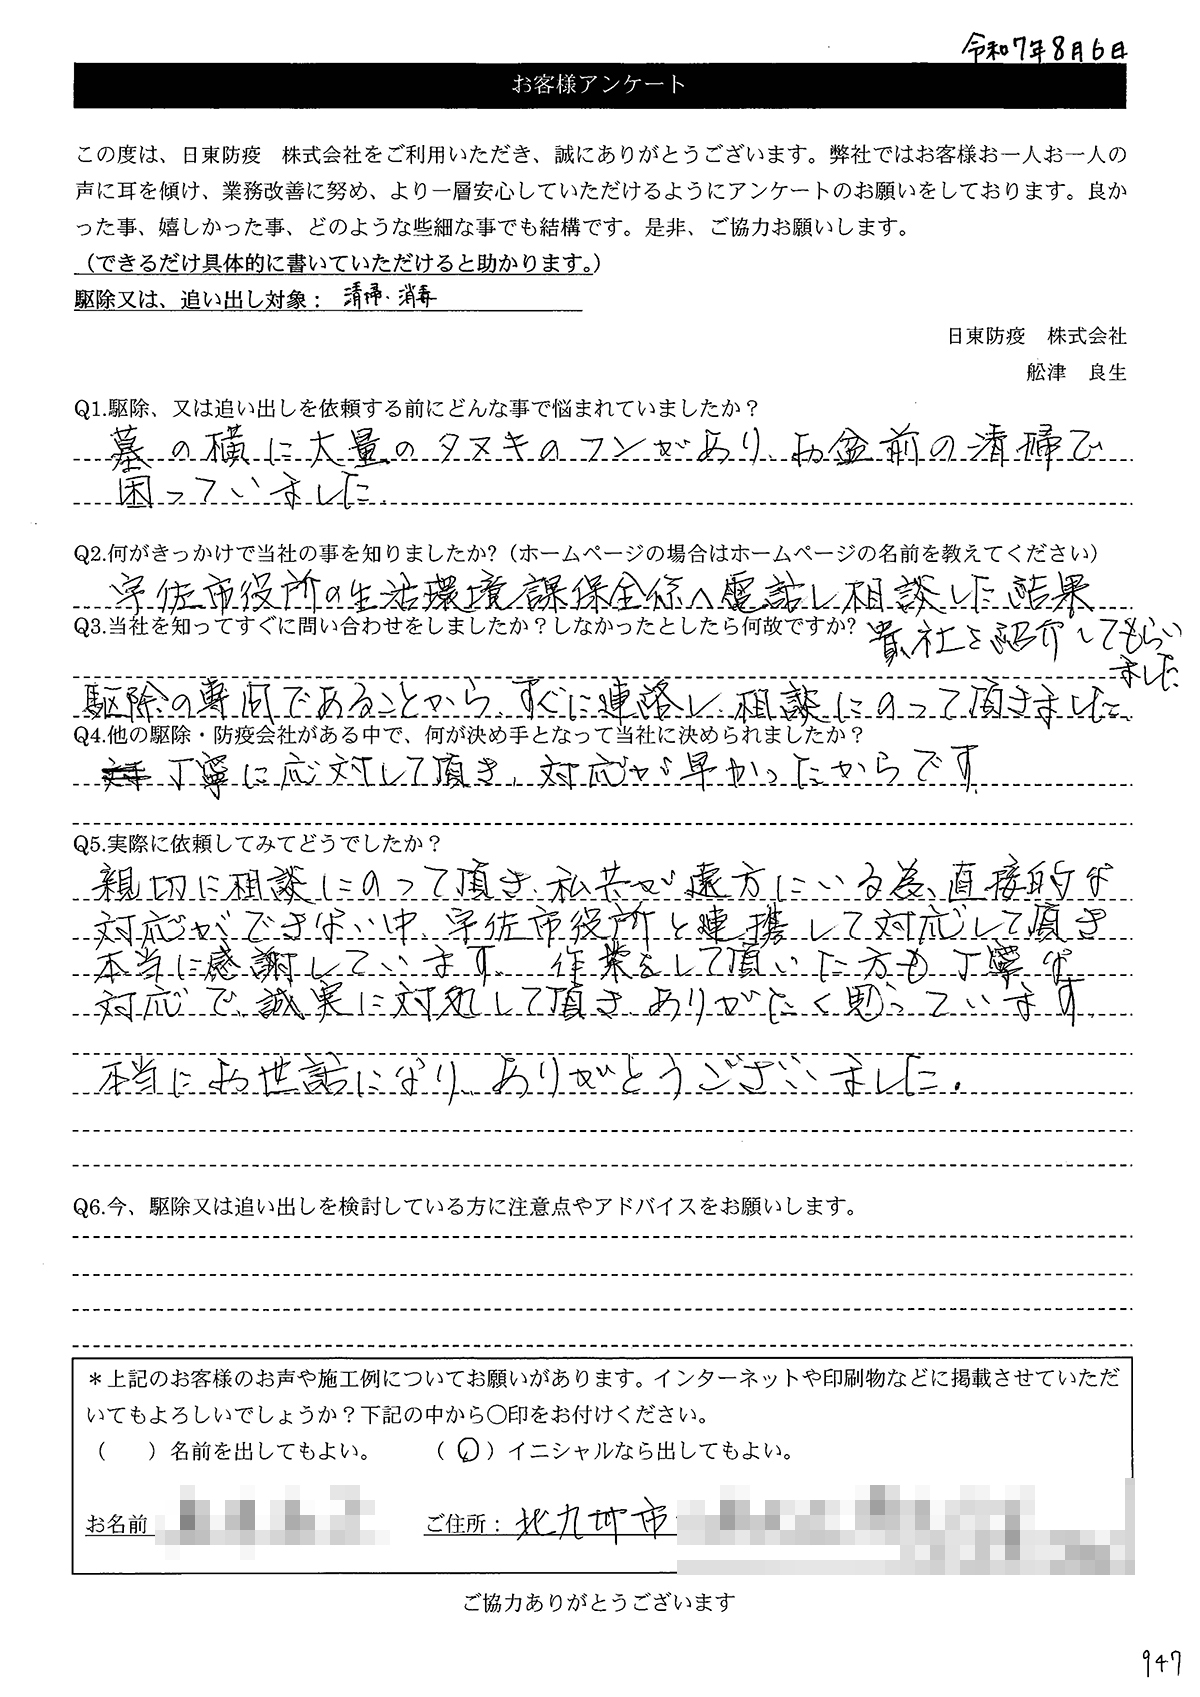 令和7年8月6日
お客様アンケート
この度は、日東防疫　株式会社をご利用いただき、誠にありがとうございます。弊社ではお客様お一人お一人の
声に耳を傾け、業務改善に努め、より一層安心していただけるようにアンケートのお願いをしております。良か
った事、嬉しかった事、どのような些細な事でも結構です。是非、ご協力お願いします。
（できるだけ具体的に書いていただけると助かります。）
駆除又は、追い出し対象： 清掃・消毒
日東防疫　株式会社
舩津　良生
Q1.駆除、又は追い出しを依頼する前にどんな事で悩まれていましたか？
墓の横に大量のタヌキのフンがあり、お盆前の清掃で
困っていました。
Q2.何がきっかけで当社の事を知りましたか?（ホームページの場合はホームページの名前を教えてください）
宇佐市役所の生活環境課保全係へ電話し相談した結果
貴社を紹介してもらい
ました
Q3.当社を知ってすぐに問い合わせをしましたか？しなかったとしたら何故ですか?
駆除の専門であることから、すぐに連絡し、相談にのって頂きました
Q4.他の駆除・防疫会社がある中で、何が決め手となって当社に決められましたか？
丁寧に応対して頂き、対応が早かったからです。
Q5.実際に依頼してみてどうでしたか？
親切に相談にのって頂き、私共が遠方にいる為、直接的な
対応ができない中、宇佐市役所と連携して対応して頂き
本当に感謝しています。作業をして頂いた方も丁寧な
対応で、誠実に対処して頂き、ありがたく思っています。
本当にお世話になり、ありがとうございました。
Q6.今、駆除又は追い出しを検討している方に注意点やアドバイスをお願いします。
＊上記のお客様のお声や施工例についてお願いがあります。インターネットや印刷物などに掲載させていただ
いてもよろしいでしょうか？下記の中から〇印をお付けください。
（　　）名前を出してもよい。　　（ 〇 ）イニシャルなら出してもよい。
お名前　ご住所： 北九州市
ご協力ありがとうございます
947